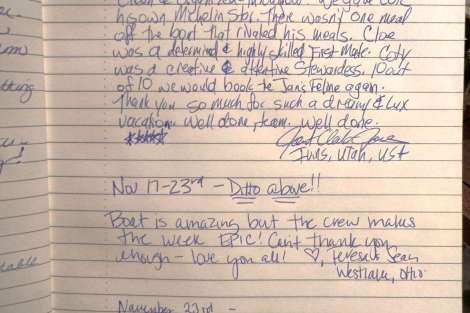 his own Michelin Star. There wasn't one meal
off the boat that rivaled his meals. Cloe
was a determined & highly skilled First Mate. Coty
was a creative & attentive Stewardess. 10 out
of 10 we would book the Jans Feline again.
Thank you so much for such a dreamy & lux
vacation. Well done, team. Well done.
Ivins, Utah, USA
Nov 17-23rd - Ditto above!!
Boat is amazing but the crew makes
the week EPIC! Can't thank you
enough - love you all! ♡, Teresa & Sean
Westlake, Ohio
November 23rd -